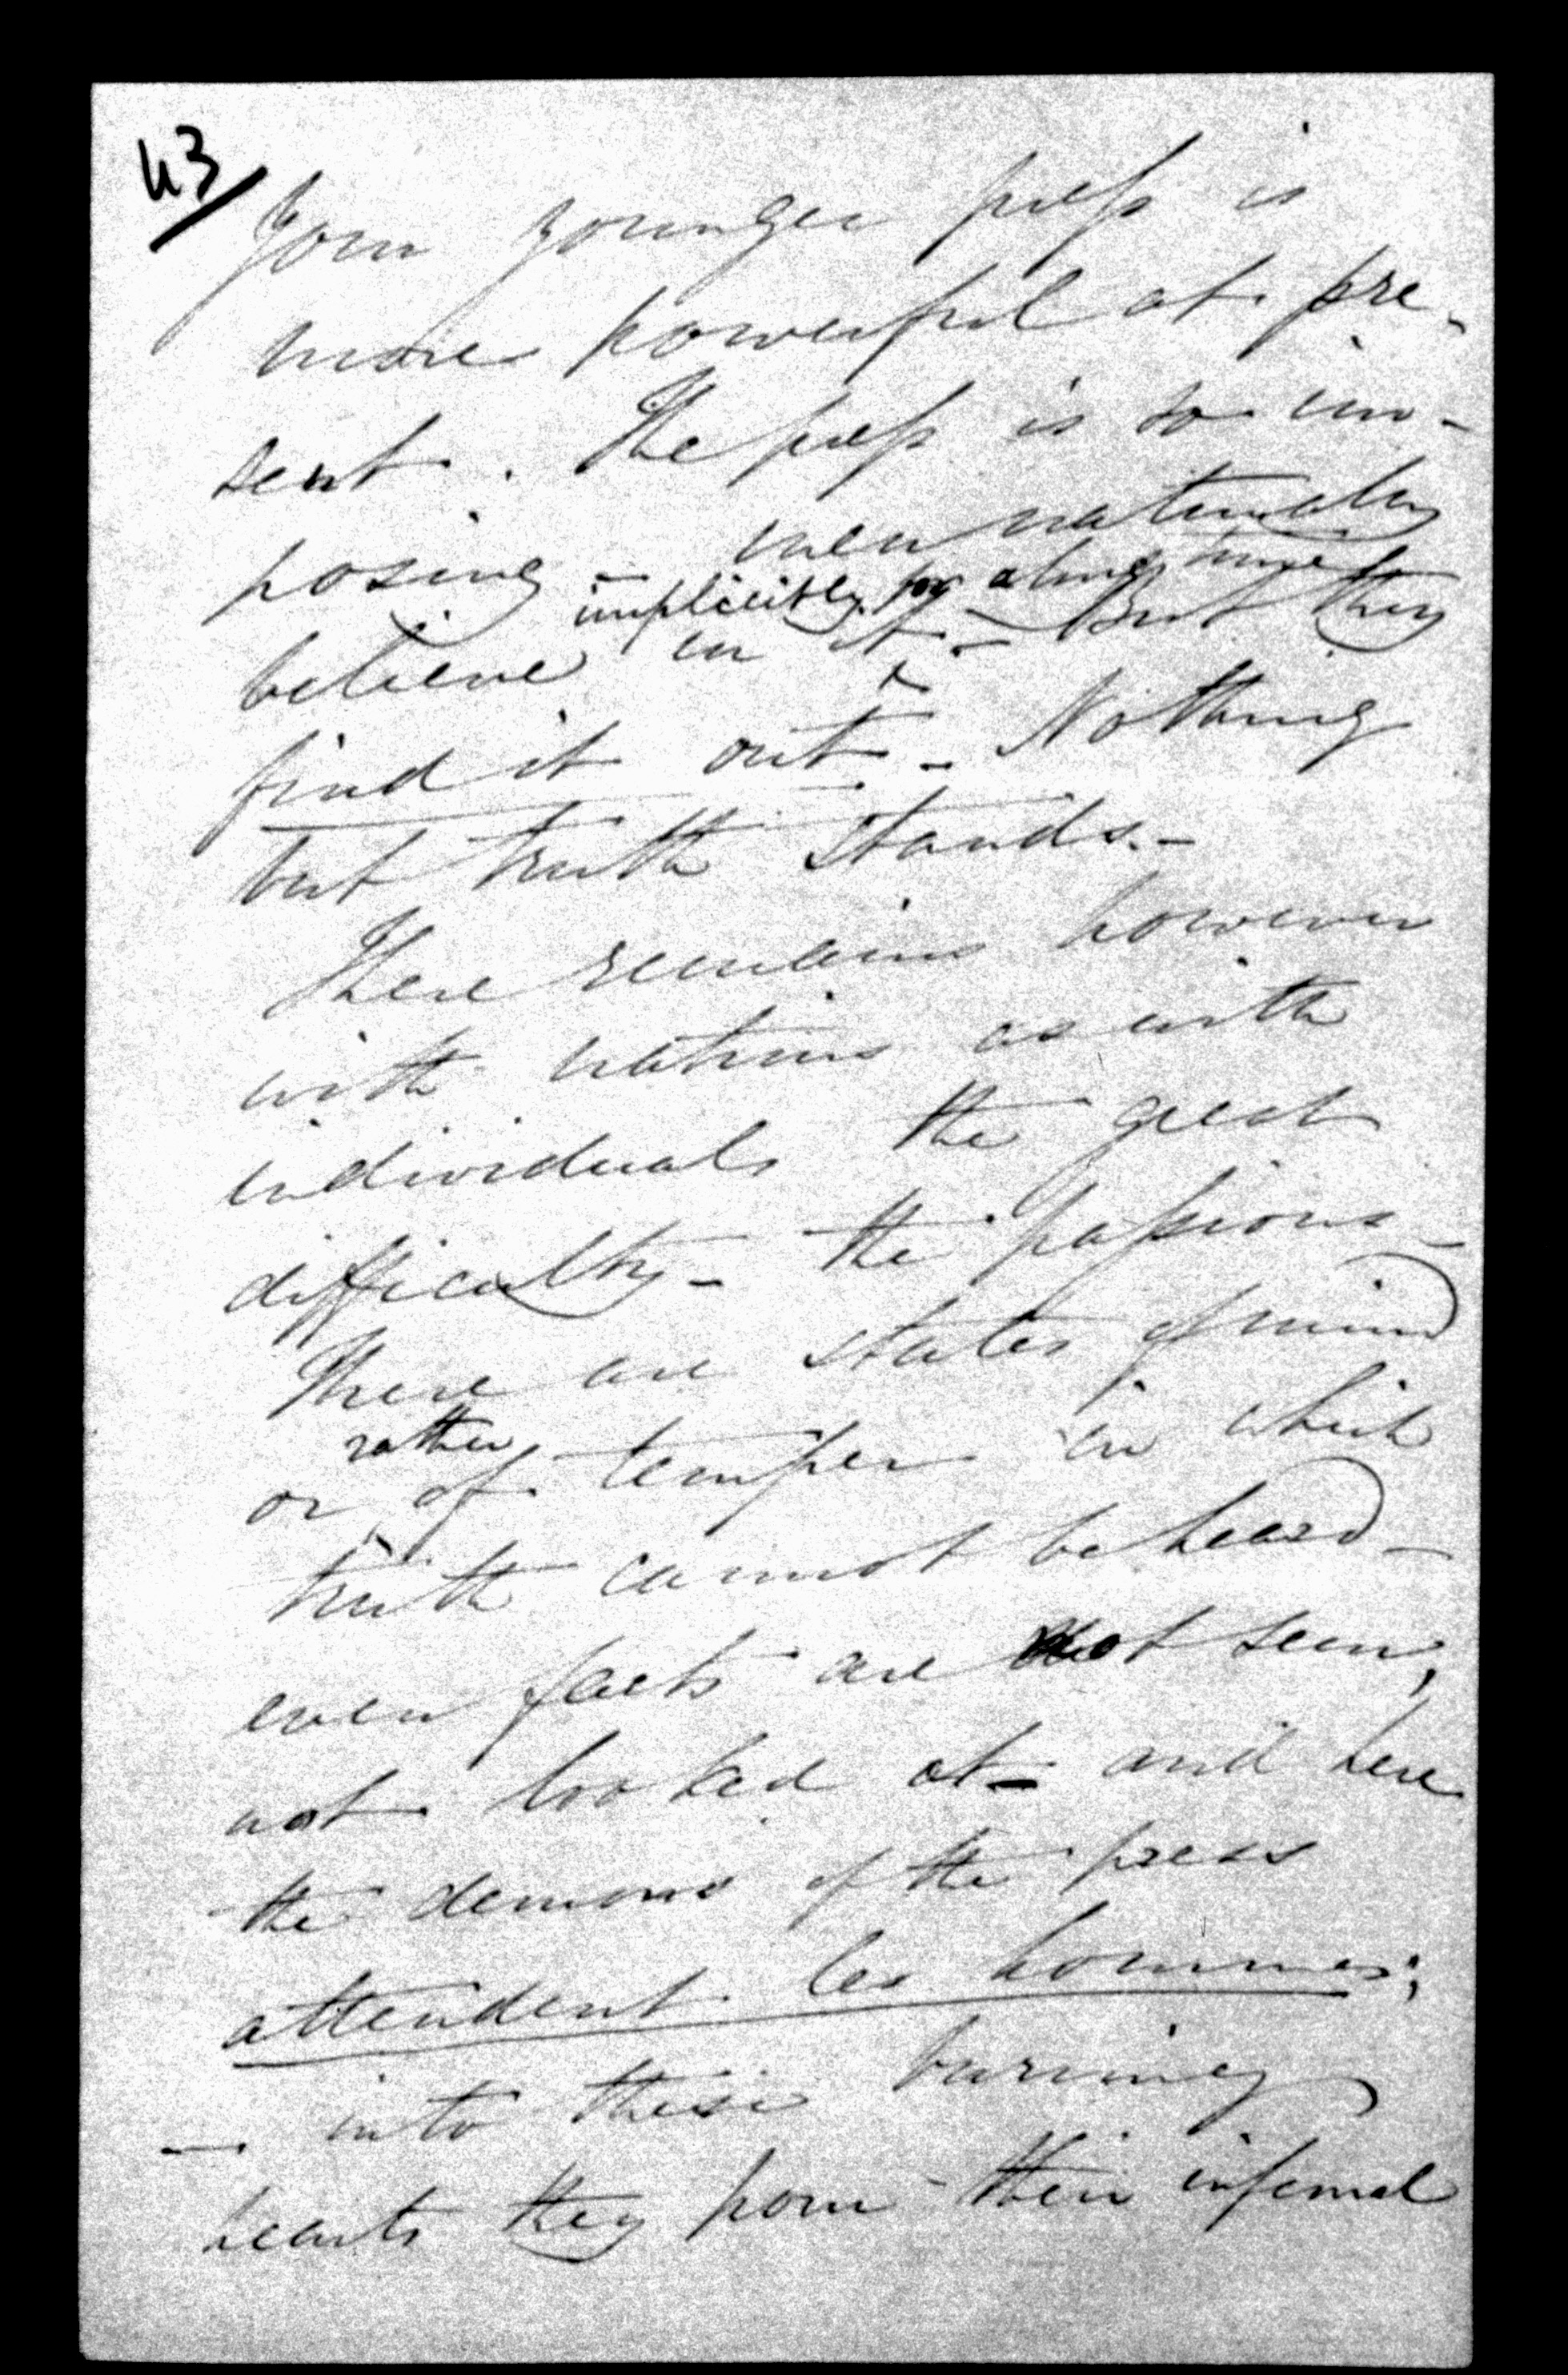 43
Your younger press is
more powerful at pre-
sent. The press is so im-
posing - men naturally
implicitly for a long time
believe in it - But they
find it out. - Nothing
but truth stands. -
There remains however
with nations as with
individuals the great
difficulty - the passions -
There are states of mind
rather
or of temper in which
truth cannot be heard -
even facts are not seen,
not looked at - and here
the demons of the press
attendent les hommes;
- into these burning
hearts they pour their infernal